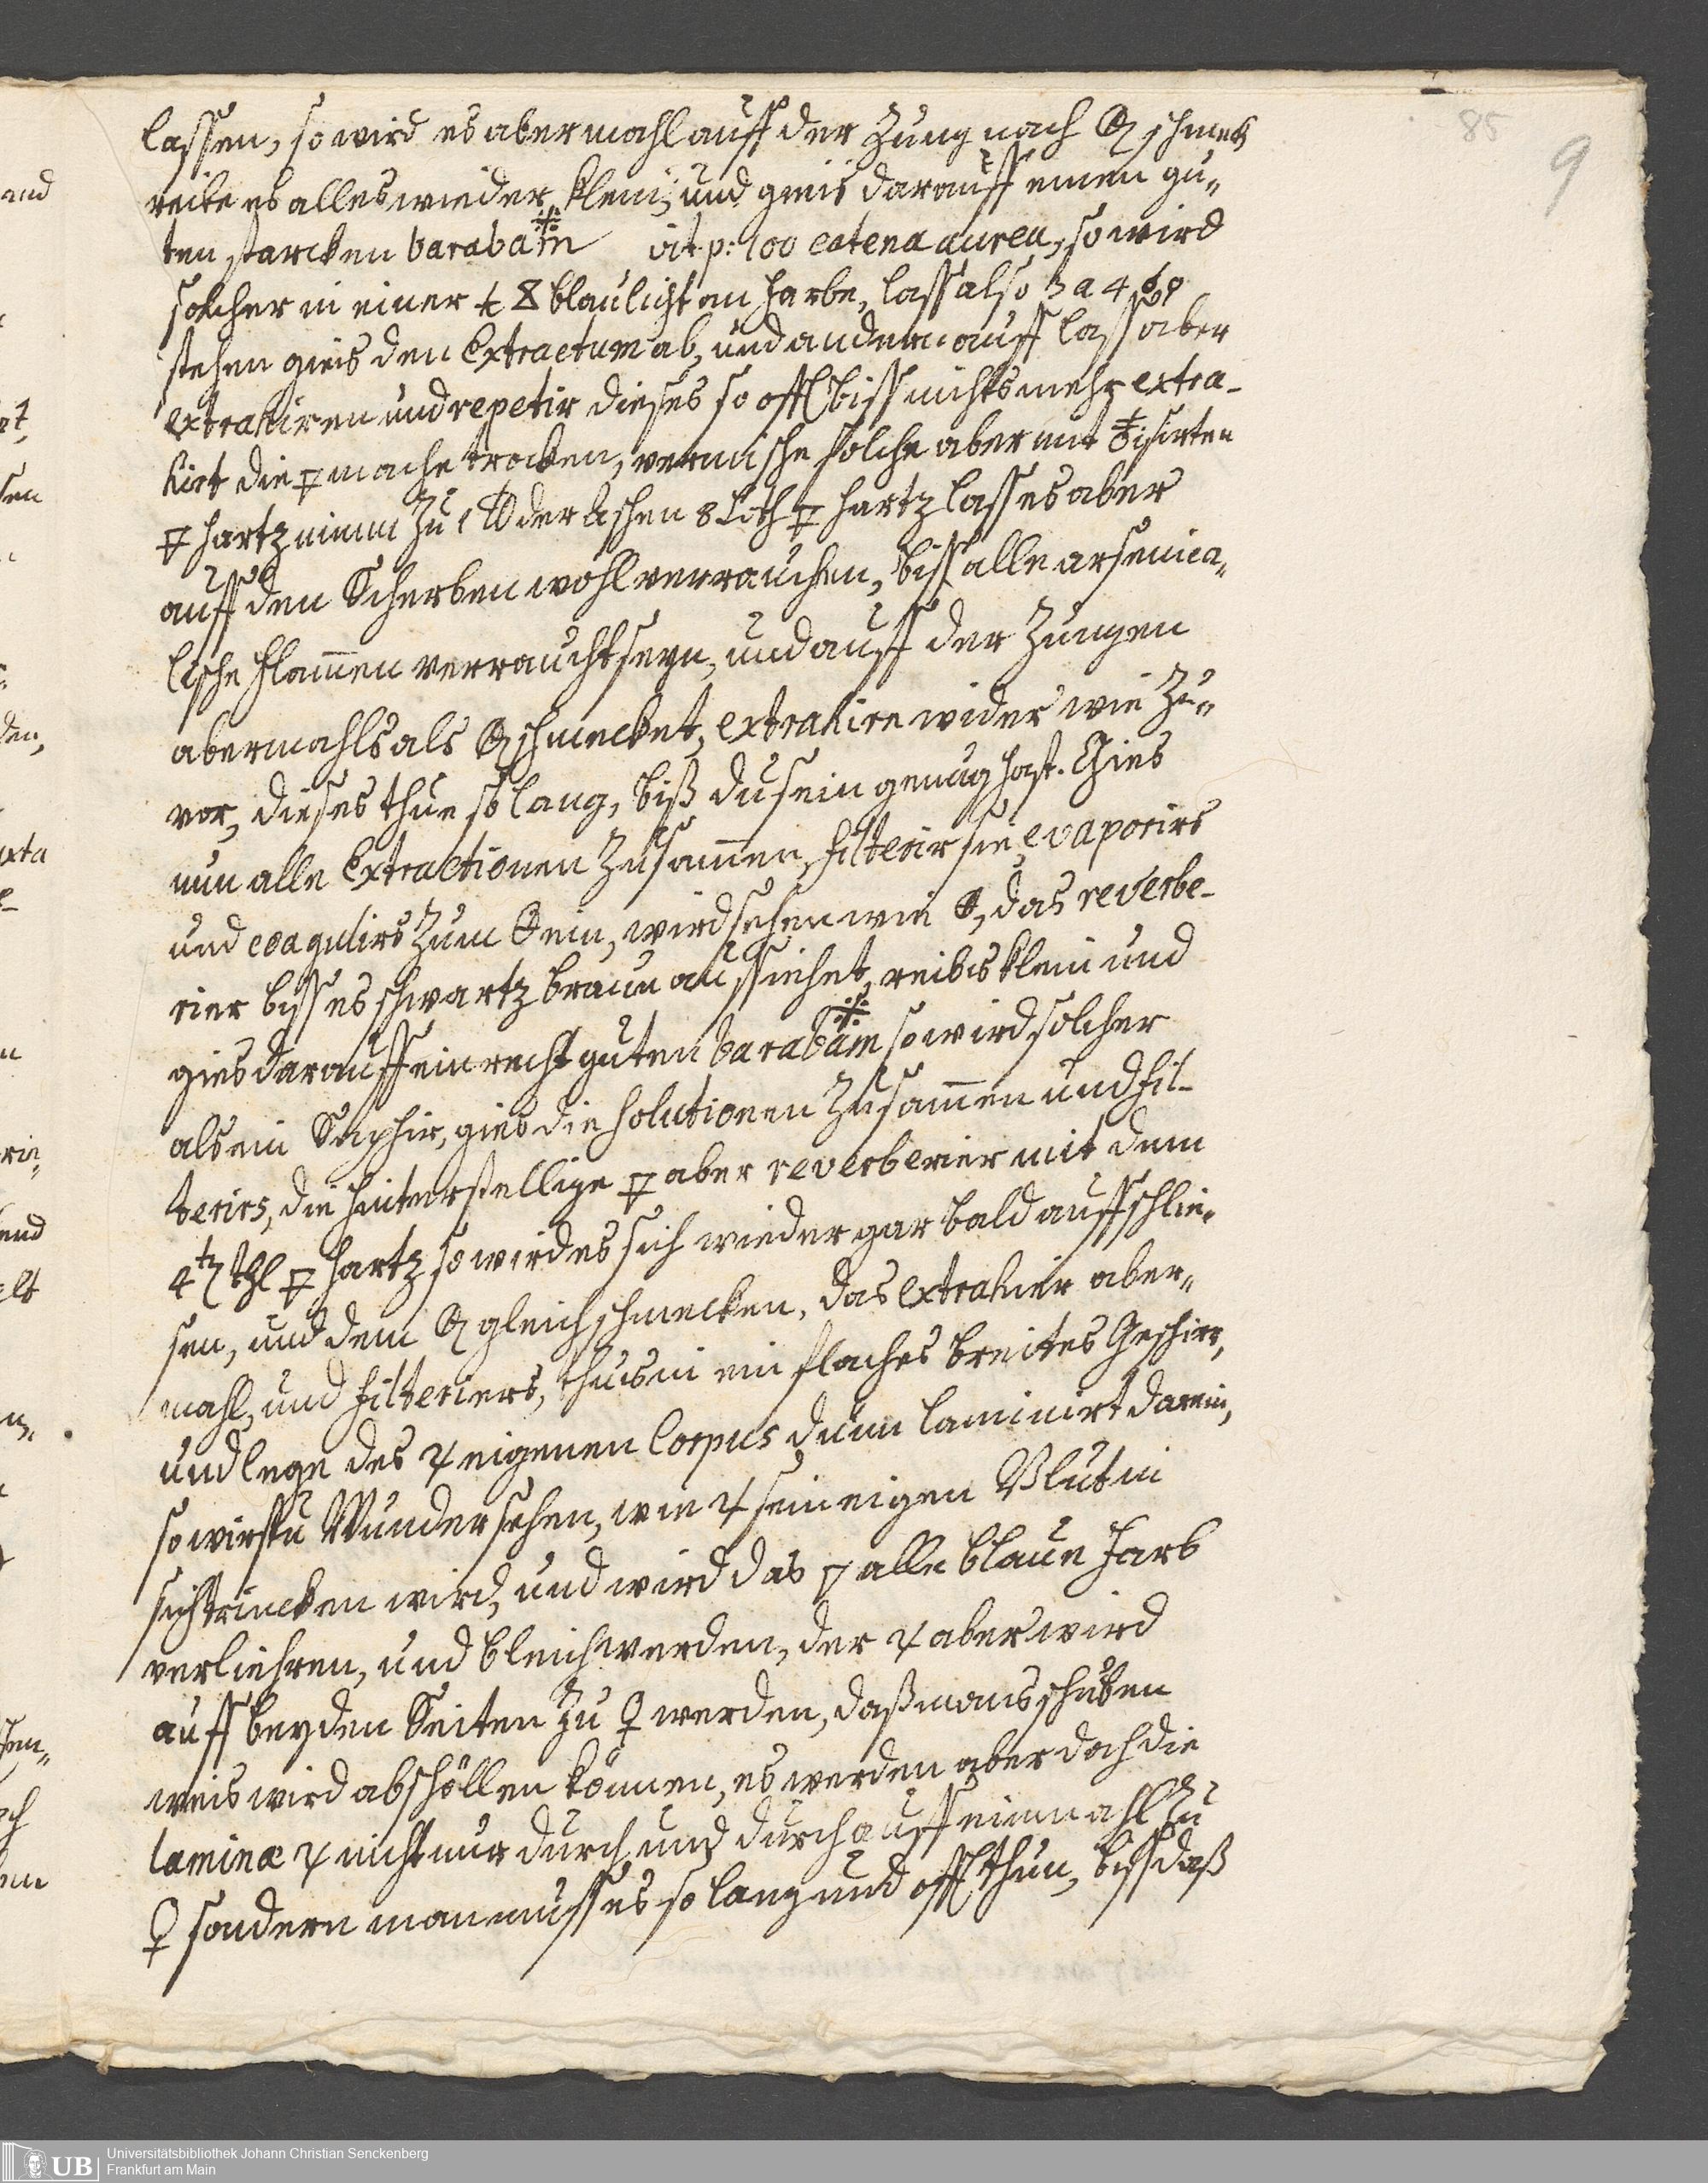 85
9
lassen, so wird es abermahl auff der Zung nach 🜖 schmeck
reibe es alles wieder klein, und gieß darauff einen gu„
ten starcken barabam※ vit p: 100 catena aurea, so wird
solcher in einer ¼ 8 blaulicht an Farbe, lass also 3 a 4
stehen gies den Extractum ab, und andern auff lass aber
extrahiren und repetir dieses so offt biss nichts mehr extra-
hirt die 🜃 mache trocken, vermische solche aber mit ♁isirten
🜃 hartz nimm Zu 1 ℔ der Aschen 8 Loth 🜃 hartz lasses aber
auff den Scherben wohl verrauchen, biss alle arsenica„
lische Flam̅en verraucht seyn, und auff der Zungen
abermahls als 🜖 schmecket, extrahire wider wie Zu„
vor, dieses thue so lang, biß du sein genug hast. Gies
nun alle Extractionen Zusam̅en, filterir sie, evaporirs
und coagulirs Zum 🜖 ein, wird sehen wie 🜖, das reverbe-
rier biss es schwartz braun aussiehet, reibs klein und
gies darauff ein recht guten barabam※ so wird solcher
als ein Saphir, gies die Solutionen Zusam̅en und fil-
terirs, die hinterstellige 🜃 aber reverberier mit dem
4ten thl 🜃 hartz so wird es sich wieder gar bald auffschlie„
sen, und dem 🜖 gleich schmecken, das extrahier aber„
mahl, und filteriers, thus in ein flaches breites Geschirr,
und lege des ♃ eigenen Corpus dünn laminirt darein,
so wirstu Wunder sehen, wie ♃ sein eigen Blut in
sich trincken wird, und wird das 🜄 alle blaue Farb
verliehren, und bleich werden, der ♃ aber wird
auff beyden Seiten Zu ♀ werden, daß mans schuben
weis wird abschöllen können, es werden aber doch die
laminæ ♃ nicht nur durch und durch auff einmahl Zu
♀ sondern man muss es so lang und offt thun, biss daß
UB
Universitätsbibliothek Johann Christian Senckenberg
Frankfurt am Main